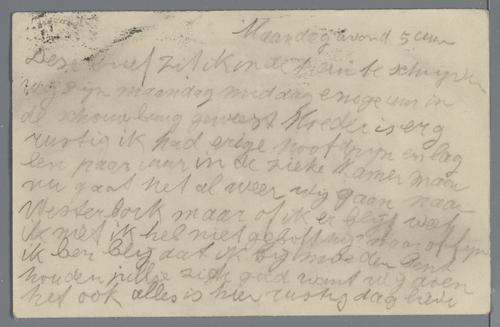 Maandag avond 5 uur
Deze brief zit ik in de trein te schrijven
wij zijn maandag middag enige uur in
de schouwburg geweest Moeder is erg
rustig ik had erge hoofdpijn en lag
een paar uur in de zieke kamer maar
nu gaat het al weer wij gaan naar
Westerbork maar of ik er blijf weet
ik niet ik heb niet maar of fijn
ik ben blij dat ik bij moeder bent
houden jullie zich goed want wij doen
het ook alles is hier rustig dag lieve